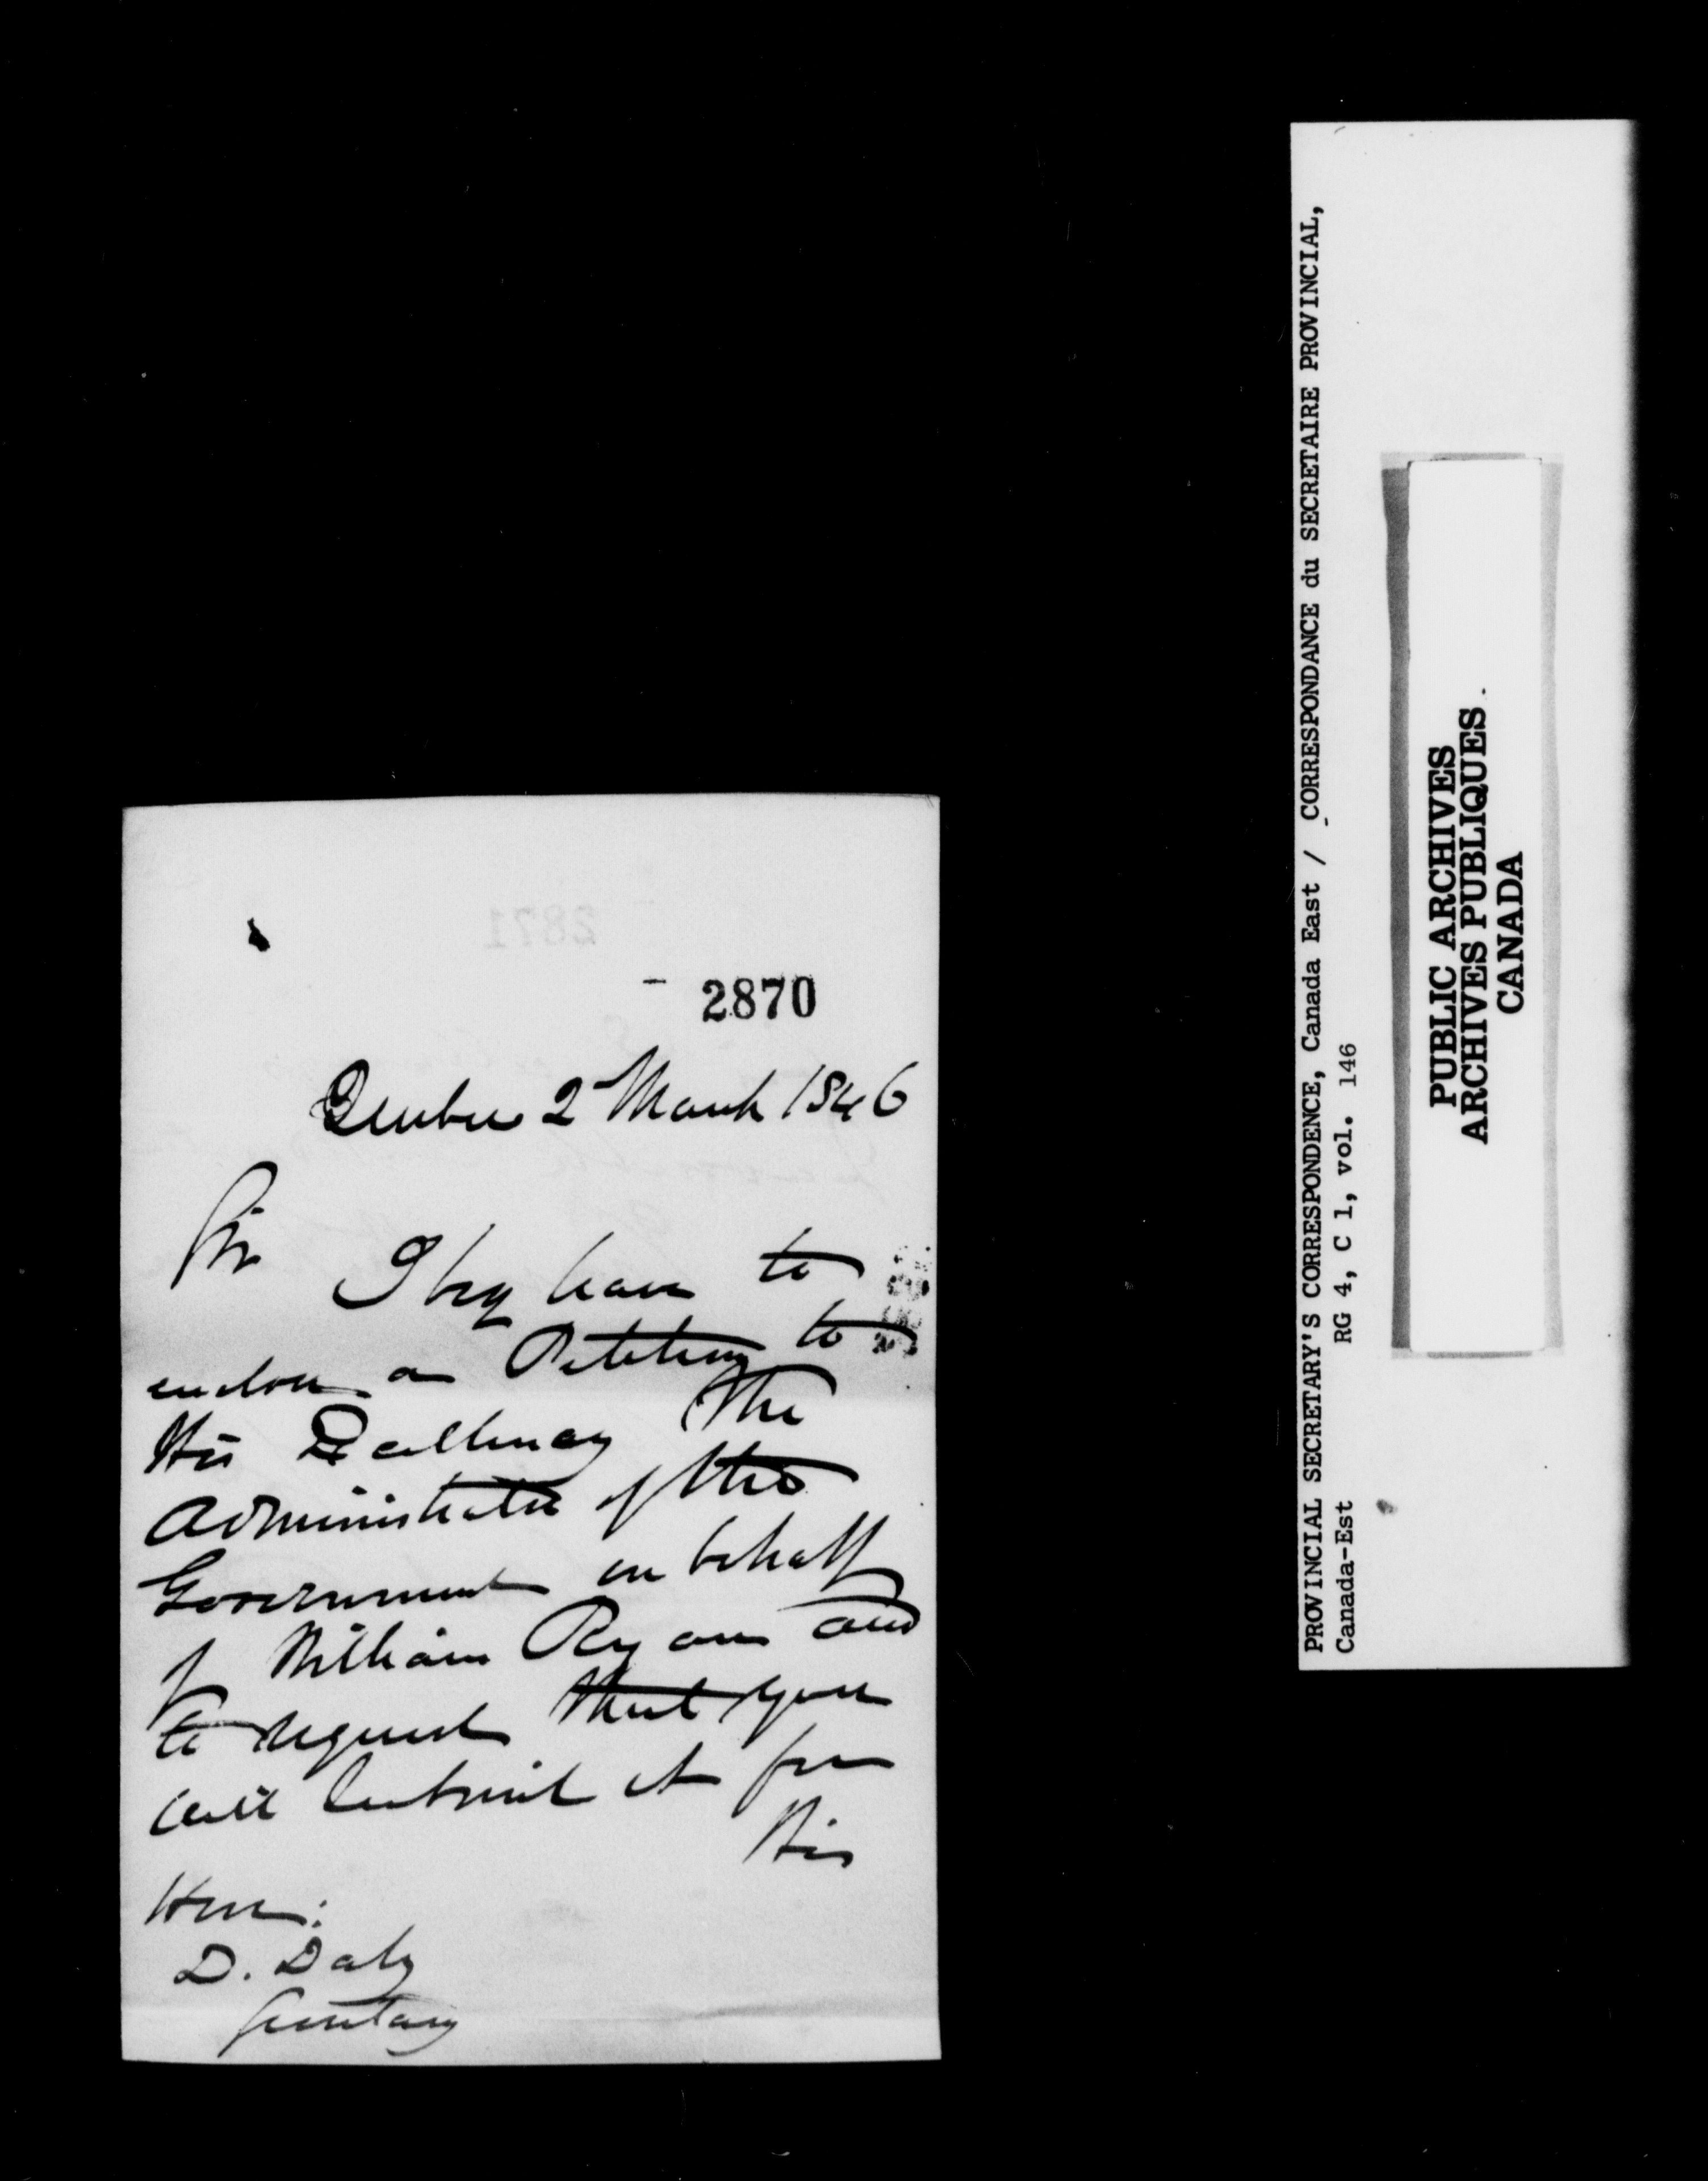 2871
2870
Quebec 2 March 1846
Sir
I beg leave to
enclose a Petition to
His Excellency the
Administrator of the
Government on behalf
of William Ryan and
to request that you
will submit it for
His
Hon:
D. Daly
Secretary
PROVINCIAL SECRETARY'S CORRESPONDENCE, Canada East / CORRESPONDANCE du SECRETAIRE PROVINCIAL,
Canada-Est RG 4, C 1, vol. 146
PUBLIC ARCHIVES
ARCHIVES PUBLIQUES
CANADA